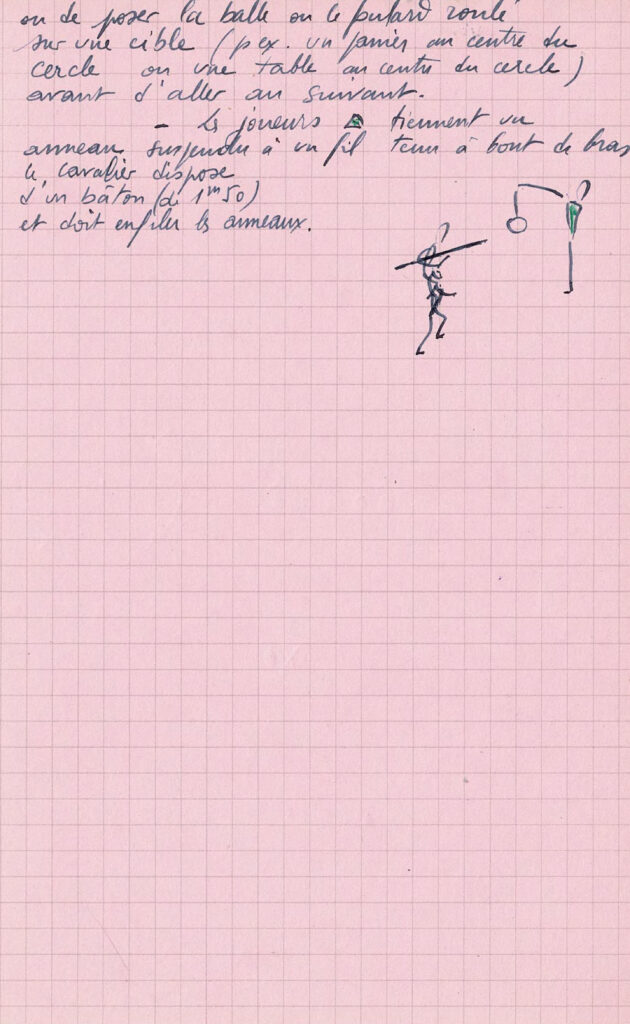 ou de poser la balle ou le foulard roulé
sur une cible (p ex. un panier au centre du
cercle ou une table au centre du cercle)
avant d'aller au suivant.
- Les joueurs tiennent un
anneau suspendu à un fil tenu à bout de bras
le cavalier dispose
d'un bâton (de 1m50)
et doit enfiler les anneaux.